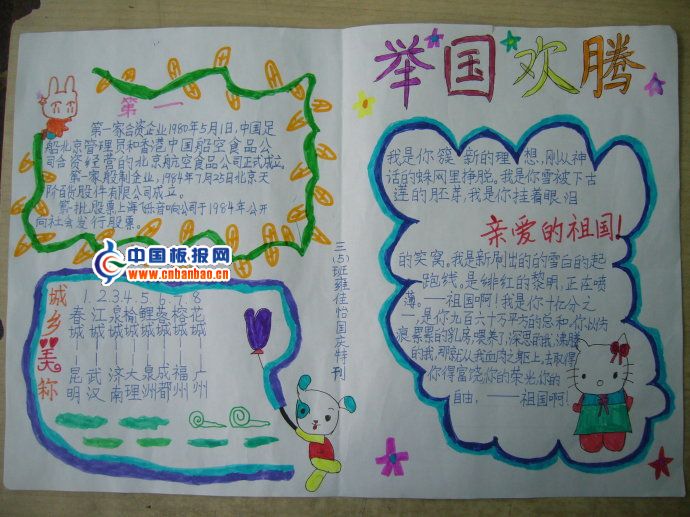 举国欢腾
第一
第一家合资企业1980年5月1日,中国足
船北京管理员和香港中国船空食品公
司合资经营的北京航空食品公司正式成立.
第一家股制企业,1984年7月25日北京天
阶百份股件有限公司成立.
第一批股票上海飞乐音响公司于1984年公开
向社会发行股票.
中国板报网
www.cnbanbao.cn
城乡美称
1.2.3.4.5.6.7.8
春江泉榆鲤蓉榕花
城城城城城城城城
昆武济大泉成福广
明汉南理洲都州州
三(5)班雍佳怡国庆特刊
我是你簇新的理想,刚从神
话的蛛网里挣脱。我是你雪被下古
莲的胚芽,我是你挂着眼泪
亲爱的祖国!
的笑窝。我是新刷出的的雪白的起
跑线。是绯红的黎明,正在喷
薄。——祖国啊!我是你十亿分之
一,是你九百六十万平方的总和。你以伤
痕累累的乳房,喂养了,深思的我,沸腾
的我,那就从我血肉之躯上,去取得
你得富饶你的荣光,你的
自由,——祖国啊!